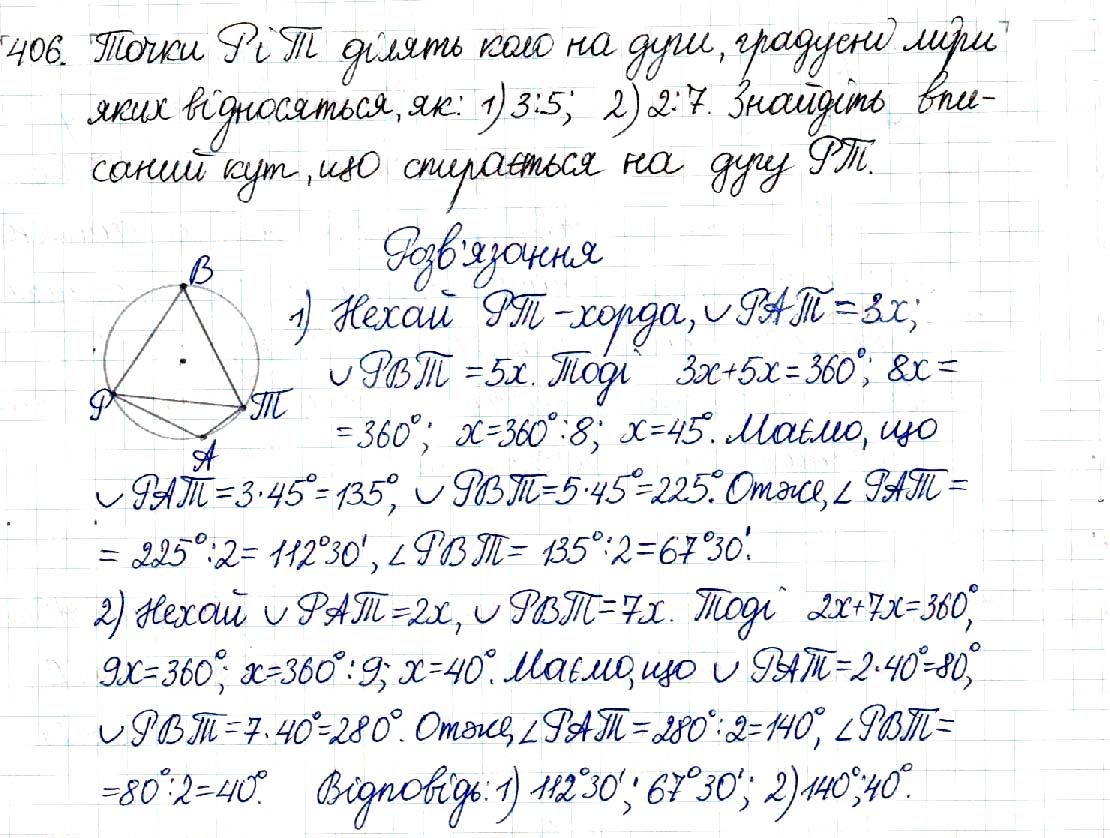 406. Точки P і T ділять коло на дуги, градусні міри
яких відносяться, як: 1) 3:5; 2) 2:7. Знайдіть впи-
саний кут, що спирається на дугу PT.
Розв'язання
B
1) Нехай PT - хорда, ◡ PAT = 3x;
◡ PBT = 5x. Тоді 3x+5x=360°; 8x =
P T
= 360°; x=360°:8; x=45°. Маємо, що
A
◡ PAT = 3·45°=135°, ◡ PBT=5·45°=225°. Отже, ∠ PAT =
= 225°:2= 112°30', ∠ PBT = 135°:2=67°30'.
2) Нехай ◡ PAT=2x, ◡ PBT=7x. Тоді 2x+7x=360°,
9x=360°; x=360°:9; x=40°. Маємо, що ◡ PAT=2·40°=80°,
◡ PBT=7·40°=280°. Отже, ∠PAT=280°:2=140°, ∠PBT=
=80°:2=40°. Відповідь: 1) 112°30'; 67°30'; 2) 140°; 40°.